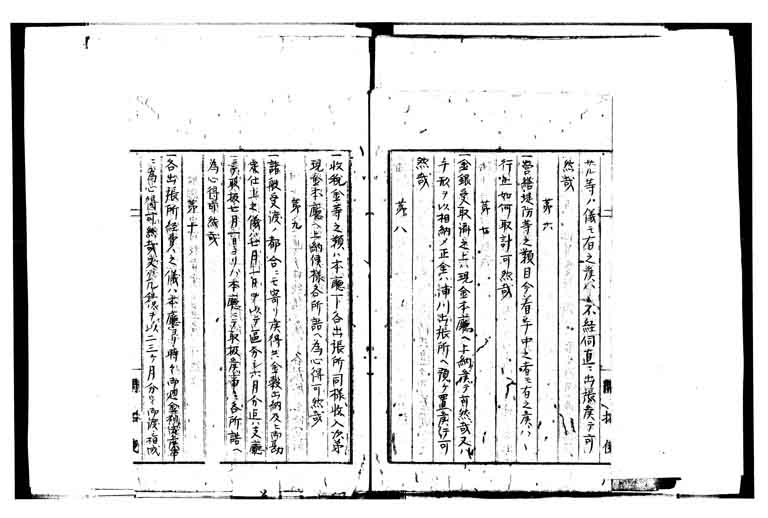 サル等ノ儀モ有之候ハヽ不経伺直ニ出張候テ可
然哉
第六
一営繕堤防等之類目今着手中之者モ有之候ハヽ
行心如何取計可然哉
第七
一金銀受取済之上ハ現金本廳ヘ上納候テ可然哉又ハ
手形ヲ以相納メ正金ハ浦川出張所ヘ預ケ置候テ可
然哉
第八
一收税金等之類ハ本廳丁各出張所同様收入次第
現金本廳ヘ上納候様各所詰ヘ為心得可然哉
第九
一諸般受渡ノ都合ニモ寄リ候得共金穀出納及ヒ御勘
定仕上之儀ハ廿月一日ヲ以テ區分シ六月分迠ハ支廳
ニテ取扱七月一日ヨリハ本廳ニテ取扱候事ニ各所詰ヘ
為心得可然哉
第十
一各出張所経費之儀ハ本廳ヨリ時々御廻金
ニ為心得可然哉 以二三ヶ月分ツヽ御渡相成